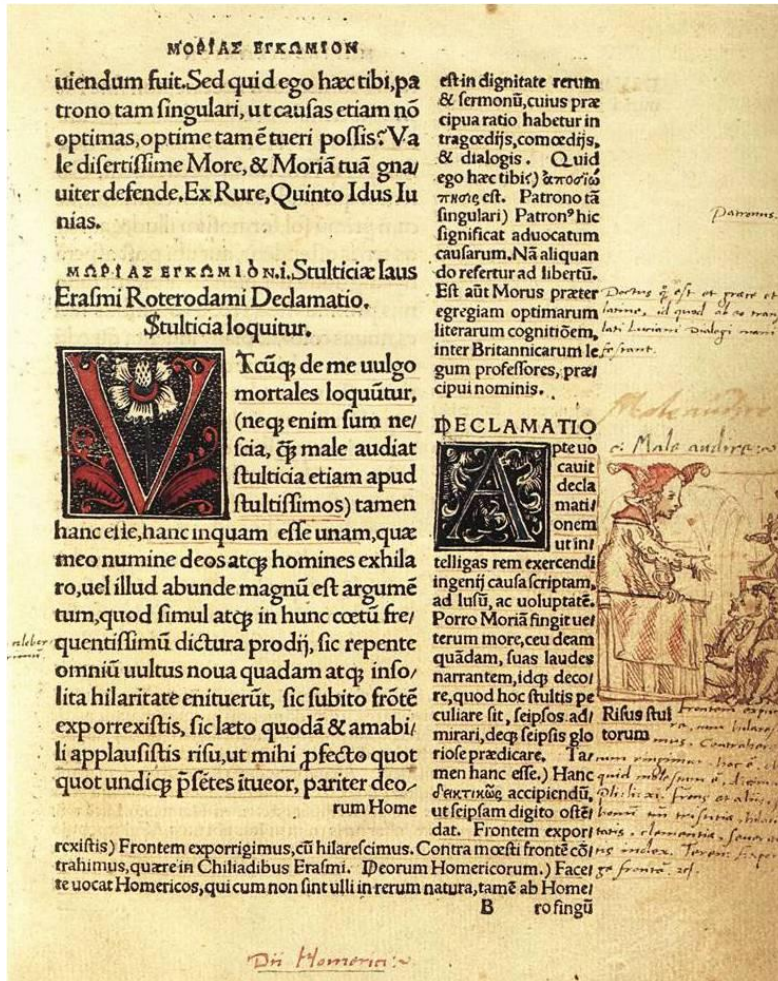 ΜΟΡΙΑΣ ΕΓΚΩΜΙΟΝ
uiendum fuit. Sed quid ego hæc tibi, pa
trono tam ſingulari, ut cauſas etiam nõ
optimas, optime tamẽ tueri poſſis? Va
le diſertiſſime More, & Moriã tuã gna/
uiter defende. Ex Rure, Quinto Idus Iu
nias.
ΜΩΡΙΑΣ ΕΓΚΩΜΙΟΝ.i. Stulticiæ laus
Eraſmi Roterodami Declamatio.
Stulticia loquitur.
VTcũq; de me uulgo
mortales loquũtur,
(neq; enim ſum ne/
ſcia, q̃ male audiat
ſtulticia etiam apud
ſtultiſſimos) tamen
hanc eſſe, hanc inquam eſſe unam, quæ
meo numine deos atq; homines exhila
ro, uel illud abunde magnũ eſt argumẽ
tum, quod ſimul atq; in hunc cœtũ fre/
quentiſſimũ dictura prodij, ſic repente
omniũ uultus noua quadam atq; inſo/
lita hilaritate enituerũt, ſic ſubito frõtẽ
exporrexiſtis, ſic læto quodã & amabi/
li applauſiſtis riſu, ut mihi ꝓfecto quot
quot undiq; p̃ſẽtes ĩtueor, pariter deo/
rum Home
eſt in dignitate rerum
& ſermonũ, cuius præ
cipua ratio habetur in
tragœdijs, comœdijs,
& dialogis. Quid
ego hæc tibi) ἀποσιώ
πησις eſt. Patrono tã
ſingulari) Patronꝰ hic
ſignificat aduocatum
cauſarum. Nã aliquan
do refertur ad libertũ.
Eſt aũt Morus præter
egregiam optimarum
literarum cognitiõem,
inter Britannicarum le
gum profeſſores, præ/
cipui nominis.
Patronus.
DECLAMATIO
Apte uo
cauit
decla
mati/
onem
ut in/
telligas rem exercendi
ingenij cauſa ſcriptam,
ad luſũ, ac uoluptatẽ.
Porro Moriã fingit ue/
terum more, ceu deam
quãdam, ſuas laudes
narrantem, idq; deco/
re, quod hoc ſtultis pe
culiare ſit, ſeipſos ad/
mirari, deq; ſeipſis glo
rioſe prædicare. Ta/
men hanc eſſe.) Hanc
δεικτικῶς accipiendũ,
ut ſeipſam digito oſtẽ/
dat. Frontem expor/
rexiſtis) Frontem exporrigimus, cũ hilareſcimus. Contra mœſti frontẽ cõ/
trahimus, quære in Chiliadibus Eraſmi. Deorum Homericorum.) Face/
te uocat Homericos, qui cum non ſint ulli in rerum natura, tamẽ ab Home/
B ro fingũ
Male audire
Riſus ſtul
torum
Dii Homerici